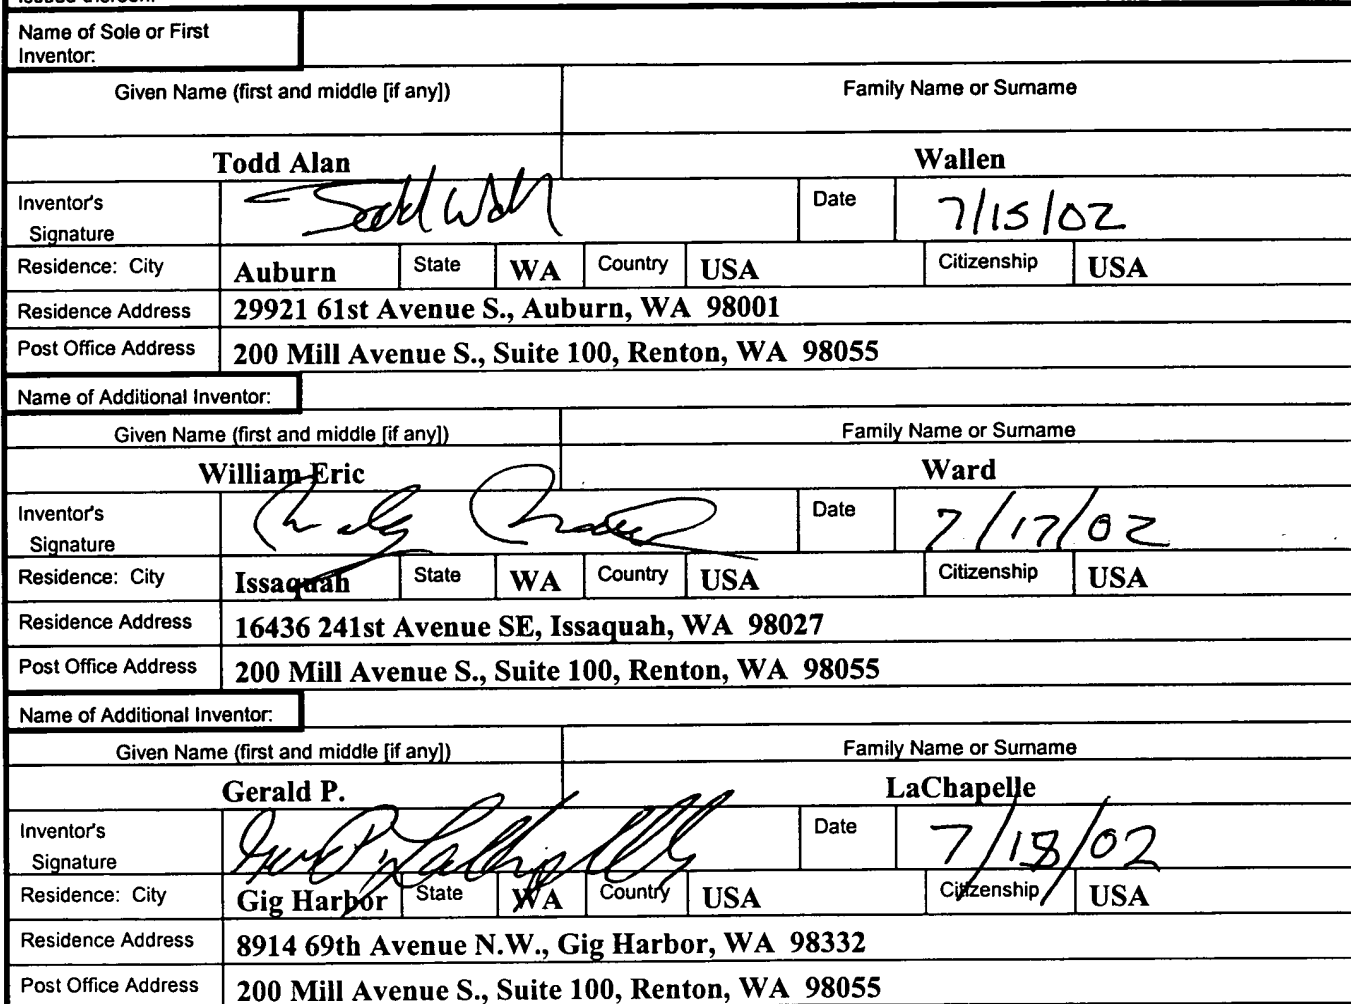 Name of Sole or First
Inventor:
Given Name (first and middle [if any]) Family Name or Surname
Todd Alan Wallen
Inventor's
Signature Date 7/15/02
Residence: City Auburn State WA Country USA Citizenship USA
Residence Address 29921 61st Avenue S., Auburn, WA 98001
Post Office Address 200 Mill Avenue S., Suite 100, Renton, WA 98055
Name of Additional Inventor:
Given Name (first and middle [if any]) Family Name or Surname
William Eric Ward
Inventor's
Signature Date 7/17/02
Residence: City Issaquah State WA Country USA Citizenship USA
Residence Address 16436 241st Avenue SE, Issaquah, WA 98027
Post Office Address 200 Mill Avenue S., Suite 100, Renton, WA 98055
Name of Additional Inventor:
Given Name (first and middle [if any]) Family Name or Surname
Gerald P. LaChapelle
Inventor's
Signature Date 7/18/02
Residence: City Gig Harbor State WA Country USA Citizenship USA
Residence Address 8914 69th Avenue N.W., Gig Harbor, WA 98332
Post Office Address 200 Mill Avenue S., Suite 100, Renton, WA 98055